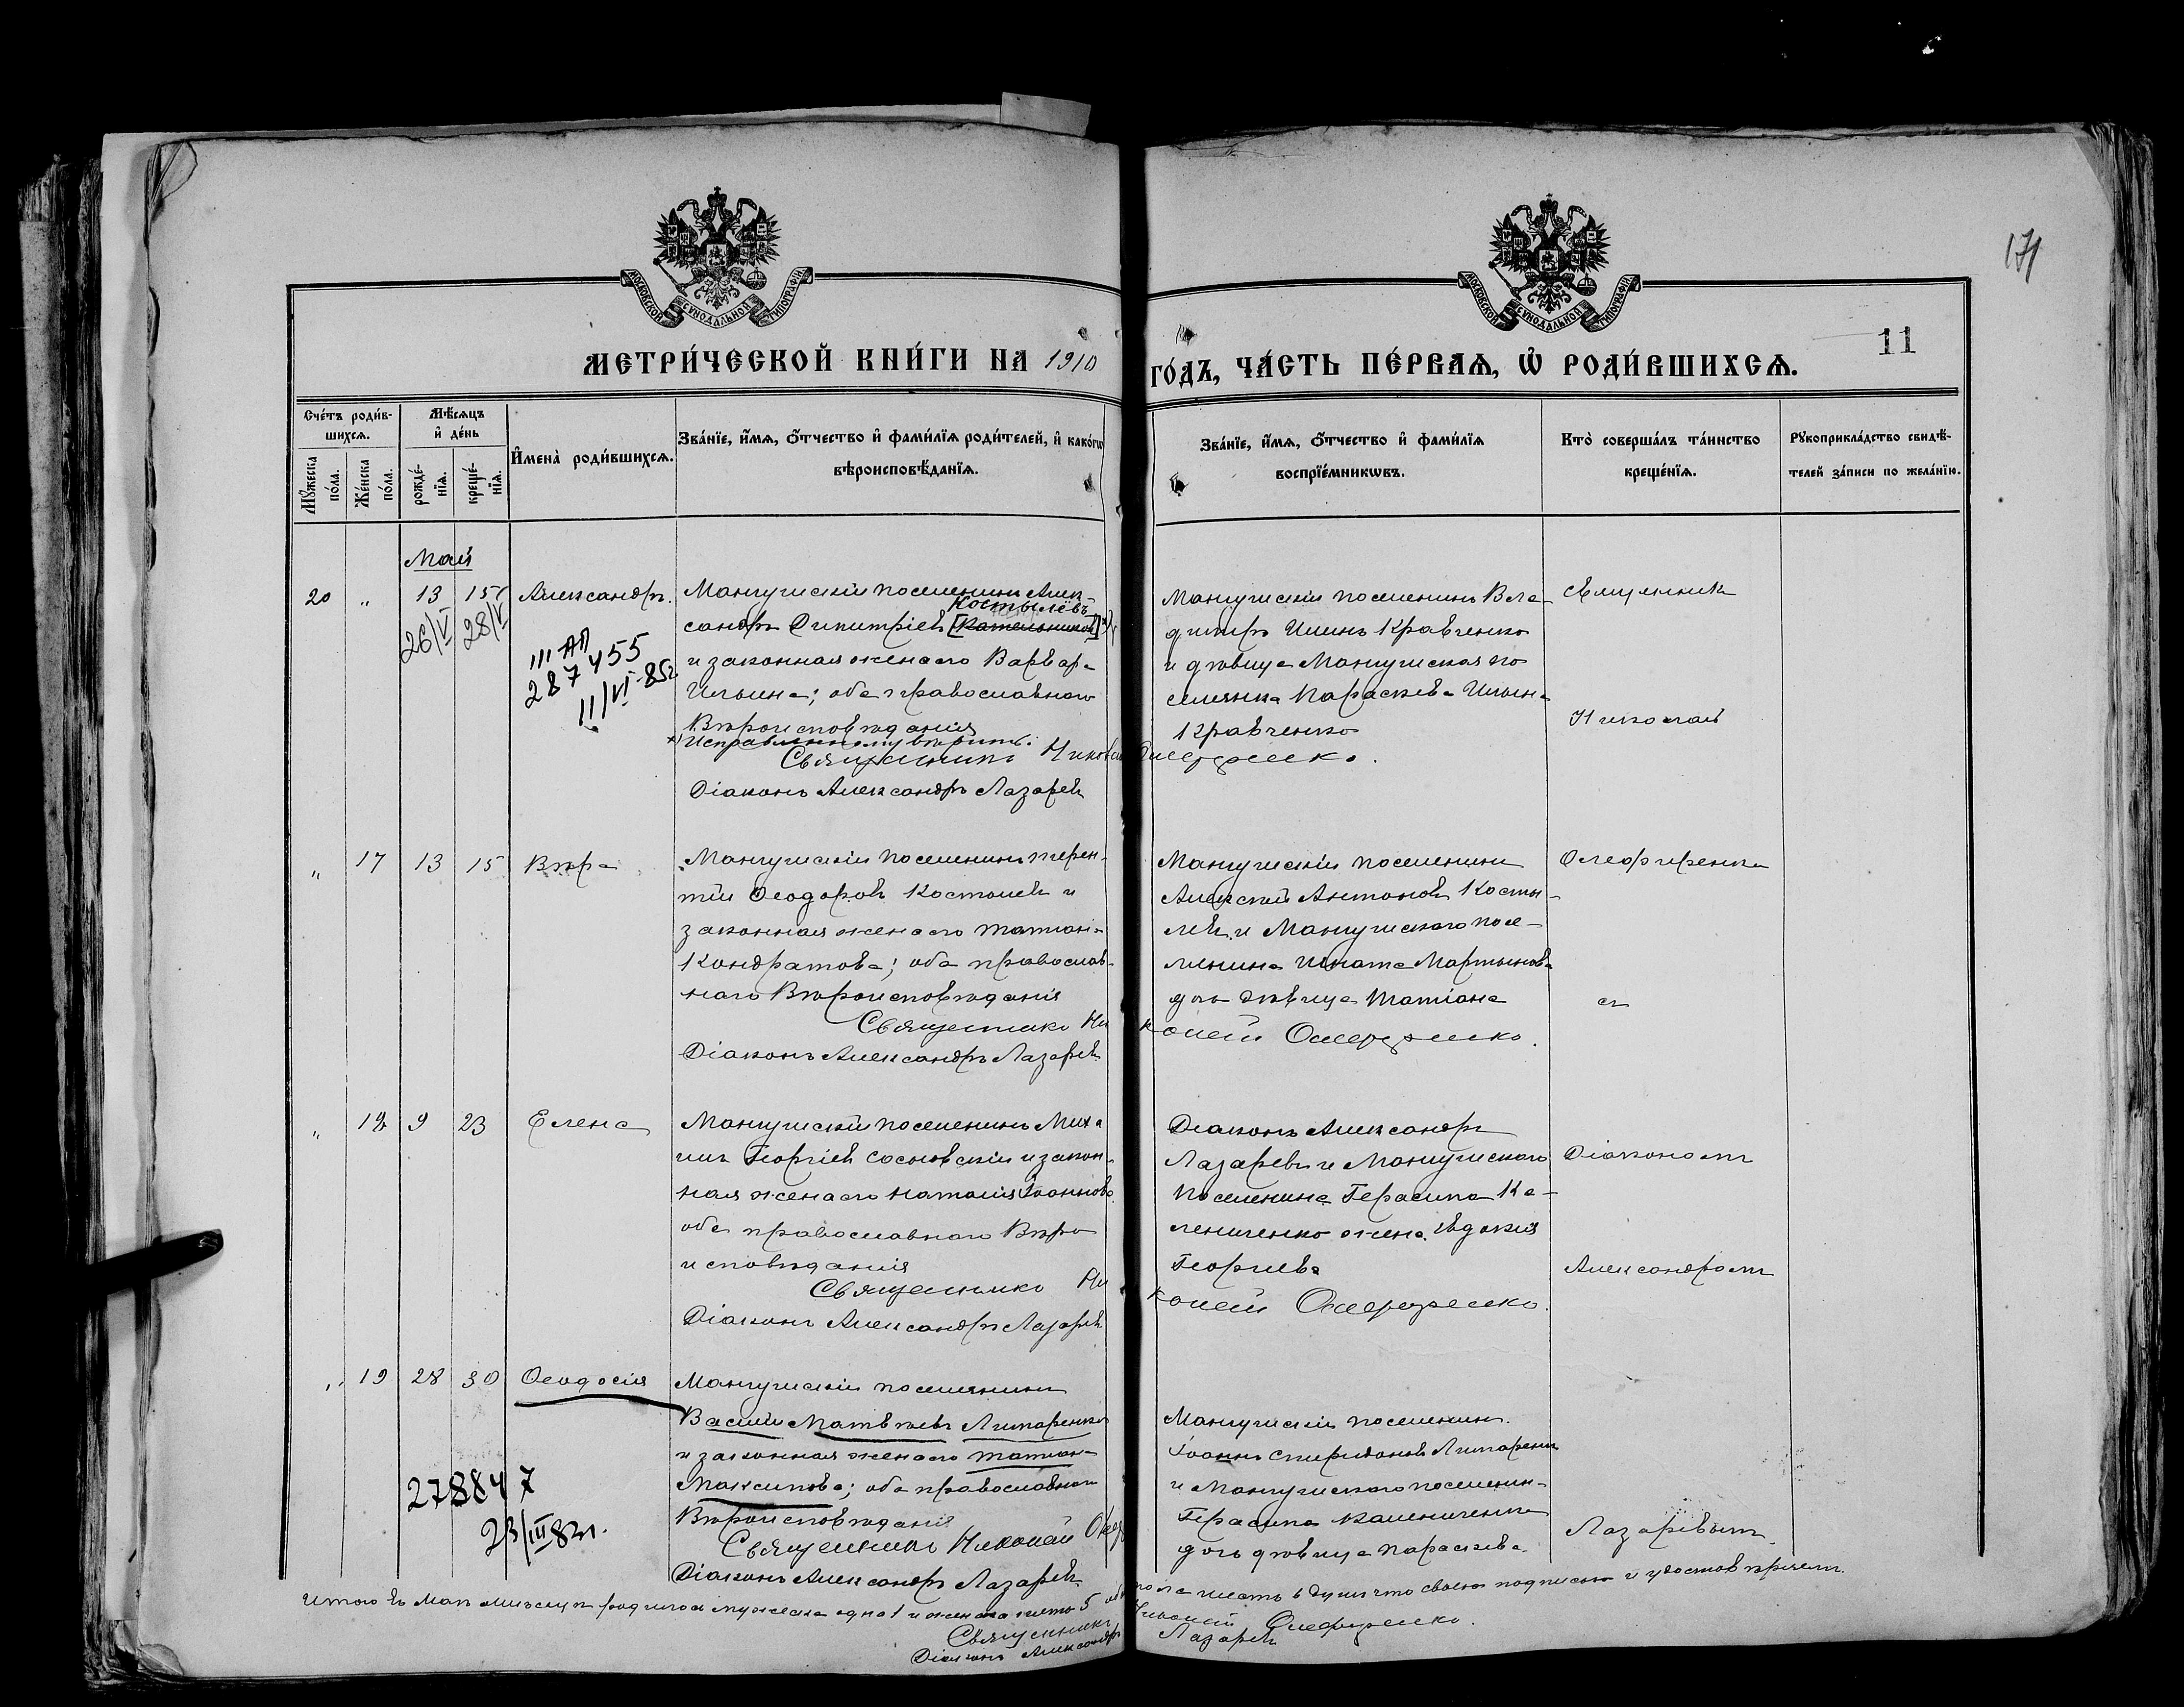 171
МОСКОВСКОЙ СѴНОДАЛЬНОЙ ТИПОГРАФІИ
МОСКОВСКОЙ СѴНОДАЛЬНОЙ ТИПОГРАФІИ
11
МЕТРИ́ЧЕСКОЙ КНИ́ГИ НА 1910
ГО́ДЪ, ЧА́СТЬ ПЕ́РВАЯ, Ѡ РОДИ́ВШИХСЯ.
Сче́тъ роди́в-
шихся.
Мꙋ́жеска по́ла.
Же́нска по́ла.
Мѣ́сяцъ
и҆ де́нь
рожде́-
нїя.
креще́-
нїя.
И҆мена̀ роди́вшихся.
Зва́нїе, и҆́мя, ѻ҆́тчество и҆ фами́лїя роди́телей, и҆ како́гѡ
вѣроисповѣ́данїя.
Зва́нїе, и҆́мя, ѻ҆́тчество и҆ фами́лїя
воспрїе́мникѡвъ.
Кто̀ соверша́лъ та́инство
креще́нїя.
Рꙋкоприкла́дство свидѣ́-
телей за́писи по жела́нїю.
Май
20 " 13 15 Александръ.
26/V 28/V
III АП
287455
11/VI-85г
Мангушскій поселянинъ Алек-
Костылёвъ
сандръ Димитріевъ [Котельниковъ] *)
и законная жена его Варвара
Ильина; оба православнаго
Вѣроисповѣданія
*) Исправленному вѣрить:
Священникъ Николай Олефиренко.
Діаконъ Александръ Лазаревъ
Мангушскій поселянинъ Вла-
димиръ Ильинъ Кравченко
и дѣвица Мангушская по
селянка Параскева Ильина
Кравченко
Священникъ
Николай
" 17 13 15 Вѣра
Мангушскій поселянинъ Терен-
тій Ѳеодоровъ Костылевъ и
законная жена его Татіана
Кондратова; оба православ-
наго Вѣроисповѣданія
Священникъ Николай Олефиренко.
Діаконъ Александръ Лазаревъ
Мангушскій поселянинъ
Алексій Антоновъ Косты-
левъ и Мангушскаго посе-
лянина Игната Мартынова
дочь дѣвица Татіана
Олефиренко
съ
" 18 9 23 Елена
Мангушскій поселянинъ Миха
илъ Георгіевъ Сосновскій и закон-
ная жена его Наталія Іоаннова
оба православнаго Вѣро
исповѣданія
Священникъ Николай Олефиренко.
Діаконъ Александръ Лазаревъ
Діаконъ Александръ
Лазаревъ и Мангушскаго
поселянина Герасима Ка-
лениченко жена Евдокія
Георгіева
Діакономъ
Александромъ
" 19 28 30 Ѳеодосія
278847
23/III 83г.
Мангушскій поселянинъ
Василій Матвѣевъ Литаренко
и законная жена его Татіана
Максимова; оба православнаго
Вѣроисповѣданія
Священникъ Николай
Діаконъ Александръ Лазаревъ
Мангушскій поселянинъ
Іоаннъ Спиридоновъ Литаренко
и Мангушскаго поселянина
Герасима Калениченка
дочь дѣвица Параскева.
Лазаревымъ
Итого въ Маѣ мѣсяцѣ родилось мужеска одна 1 и женска пять 5 обоего пола шесть 6 душъ что своею подписью и удостовѣряемъ.
Священникъ Николай Олефиренко.
Діаконъ Александръ Лазаревъ